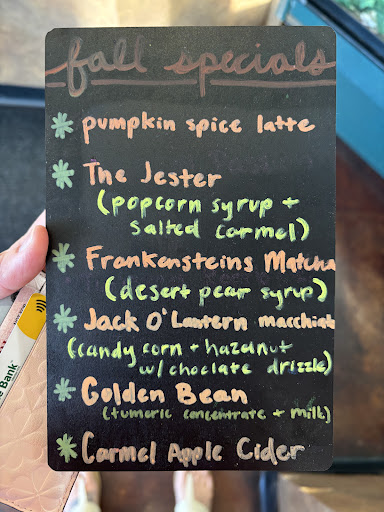 fall specials
* pumpkin spice latte
* The Jester
(popcorn syrup +
salted carmel)
* Frankensteins Matcha
(desert pear syrup)
* Jack O'Lantern macchiat
(candy corn + hazelnut
w/ choclate drizzle)
* Golden Bean
(tumeric concentrate + milk)
* Carmel Apple Cider
Bank